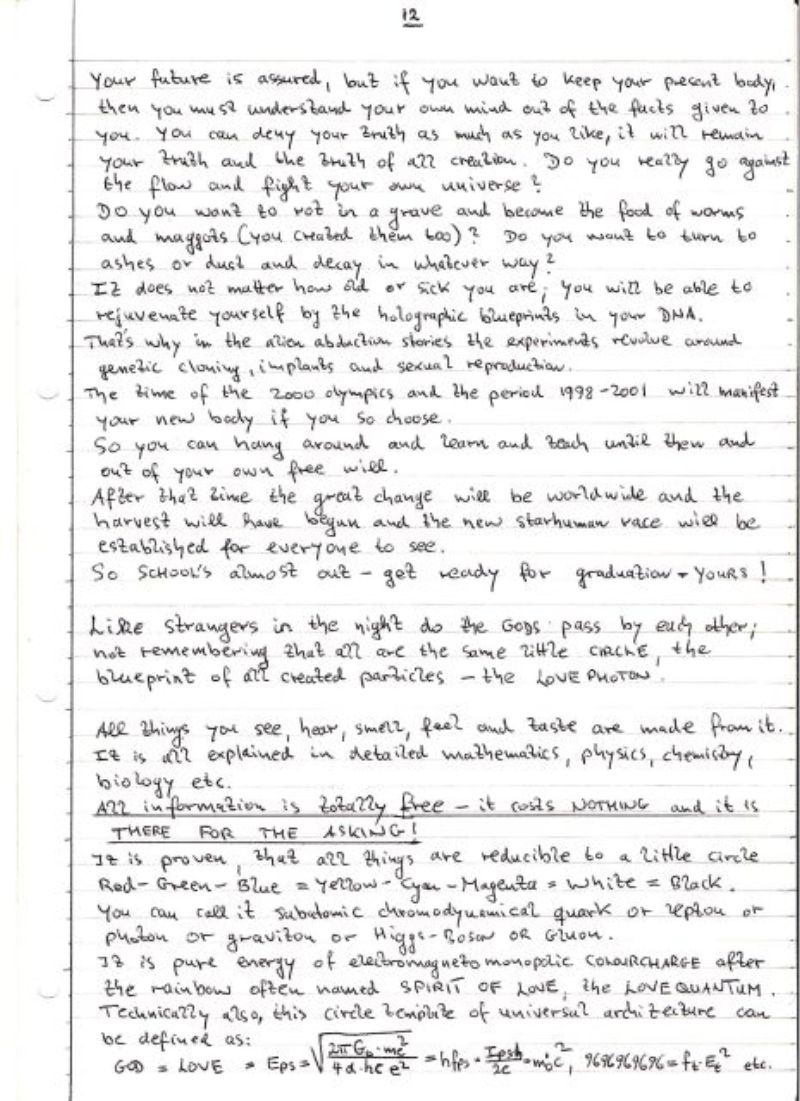 12
Your future is assured, but if you want to keep your present body,
then you must understand your own mind out of the facts given to
you. You can deny your truth as much as you like, it will remain
your truth and the truth of all creation. Do you really go against
the flow and fight your own universe?
Do you want to rot in a grave and become the food of worms
and maggots (you created them too)? Do you want to turn to
ashes or dust and decay in whatever way?
It does not matter how old or sick you are; you will be able to
rejuvenate yourself by the holographic blueprints in your DNA.
That's why in the alien abduction stories the experiments revolve around
genetic cloning, implants and sexual reproduction.
The time of the 2000 olympics and the period 1998-2001 will manifest
your new body if you so choose.
So you can hang around and learn and teach until then and
out of your own free will.
After that time the great change will be worldwide and the
harvest will have begun and the new starhuman race will be
established for everyone to see.
So SCHOOL'S almost out - get ready for graduation - YOURS!
Like strangers in the night do the GODS pass by each other;
not remembering that all are the same little CIRCLE, the
blueprint of all created particles - the LOVE PHOTON.
All things you see, hear, smell, feel and taste are made from it.
It is all explained in detailed mathematics, physics, chemistry,
biology etc.
All information is totally free - it costs NOTHING and it is
THERE FOR THE ASKING!
It is proven, that all things are reducible to a little circle
Red-Green-Blue = Yellow-Cyan-Magenta = White = Black.
You can call it subatomic chromodynamical quark or lepton or
photon or graviton or Higgs-Boson OR Gluon.
It is pure energy of electromagnetomonopolic COLOURCHARGE after
the rainbow often named SPIRIT OF LOVE, the LOVEQUANTUM.
Technically also, this circle template of universal architecture can
be defined as:
GOD = LOVE = Eps = 9696969696 = etc.